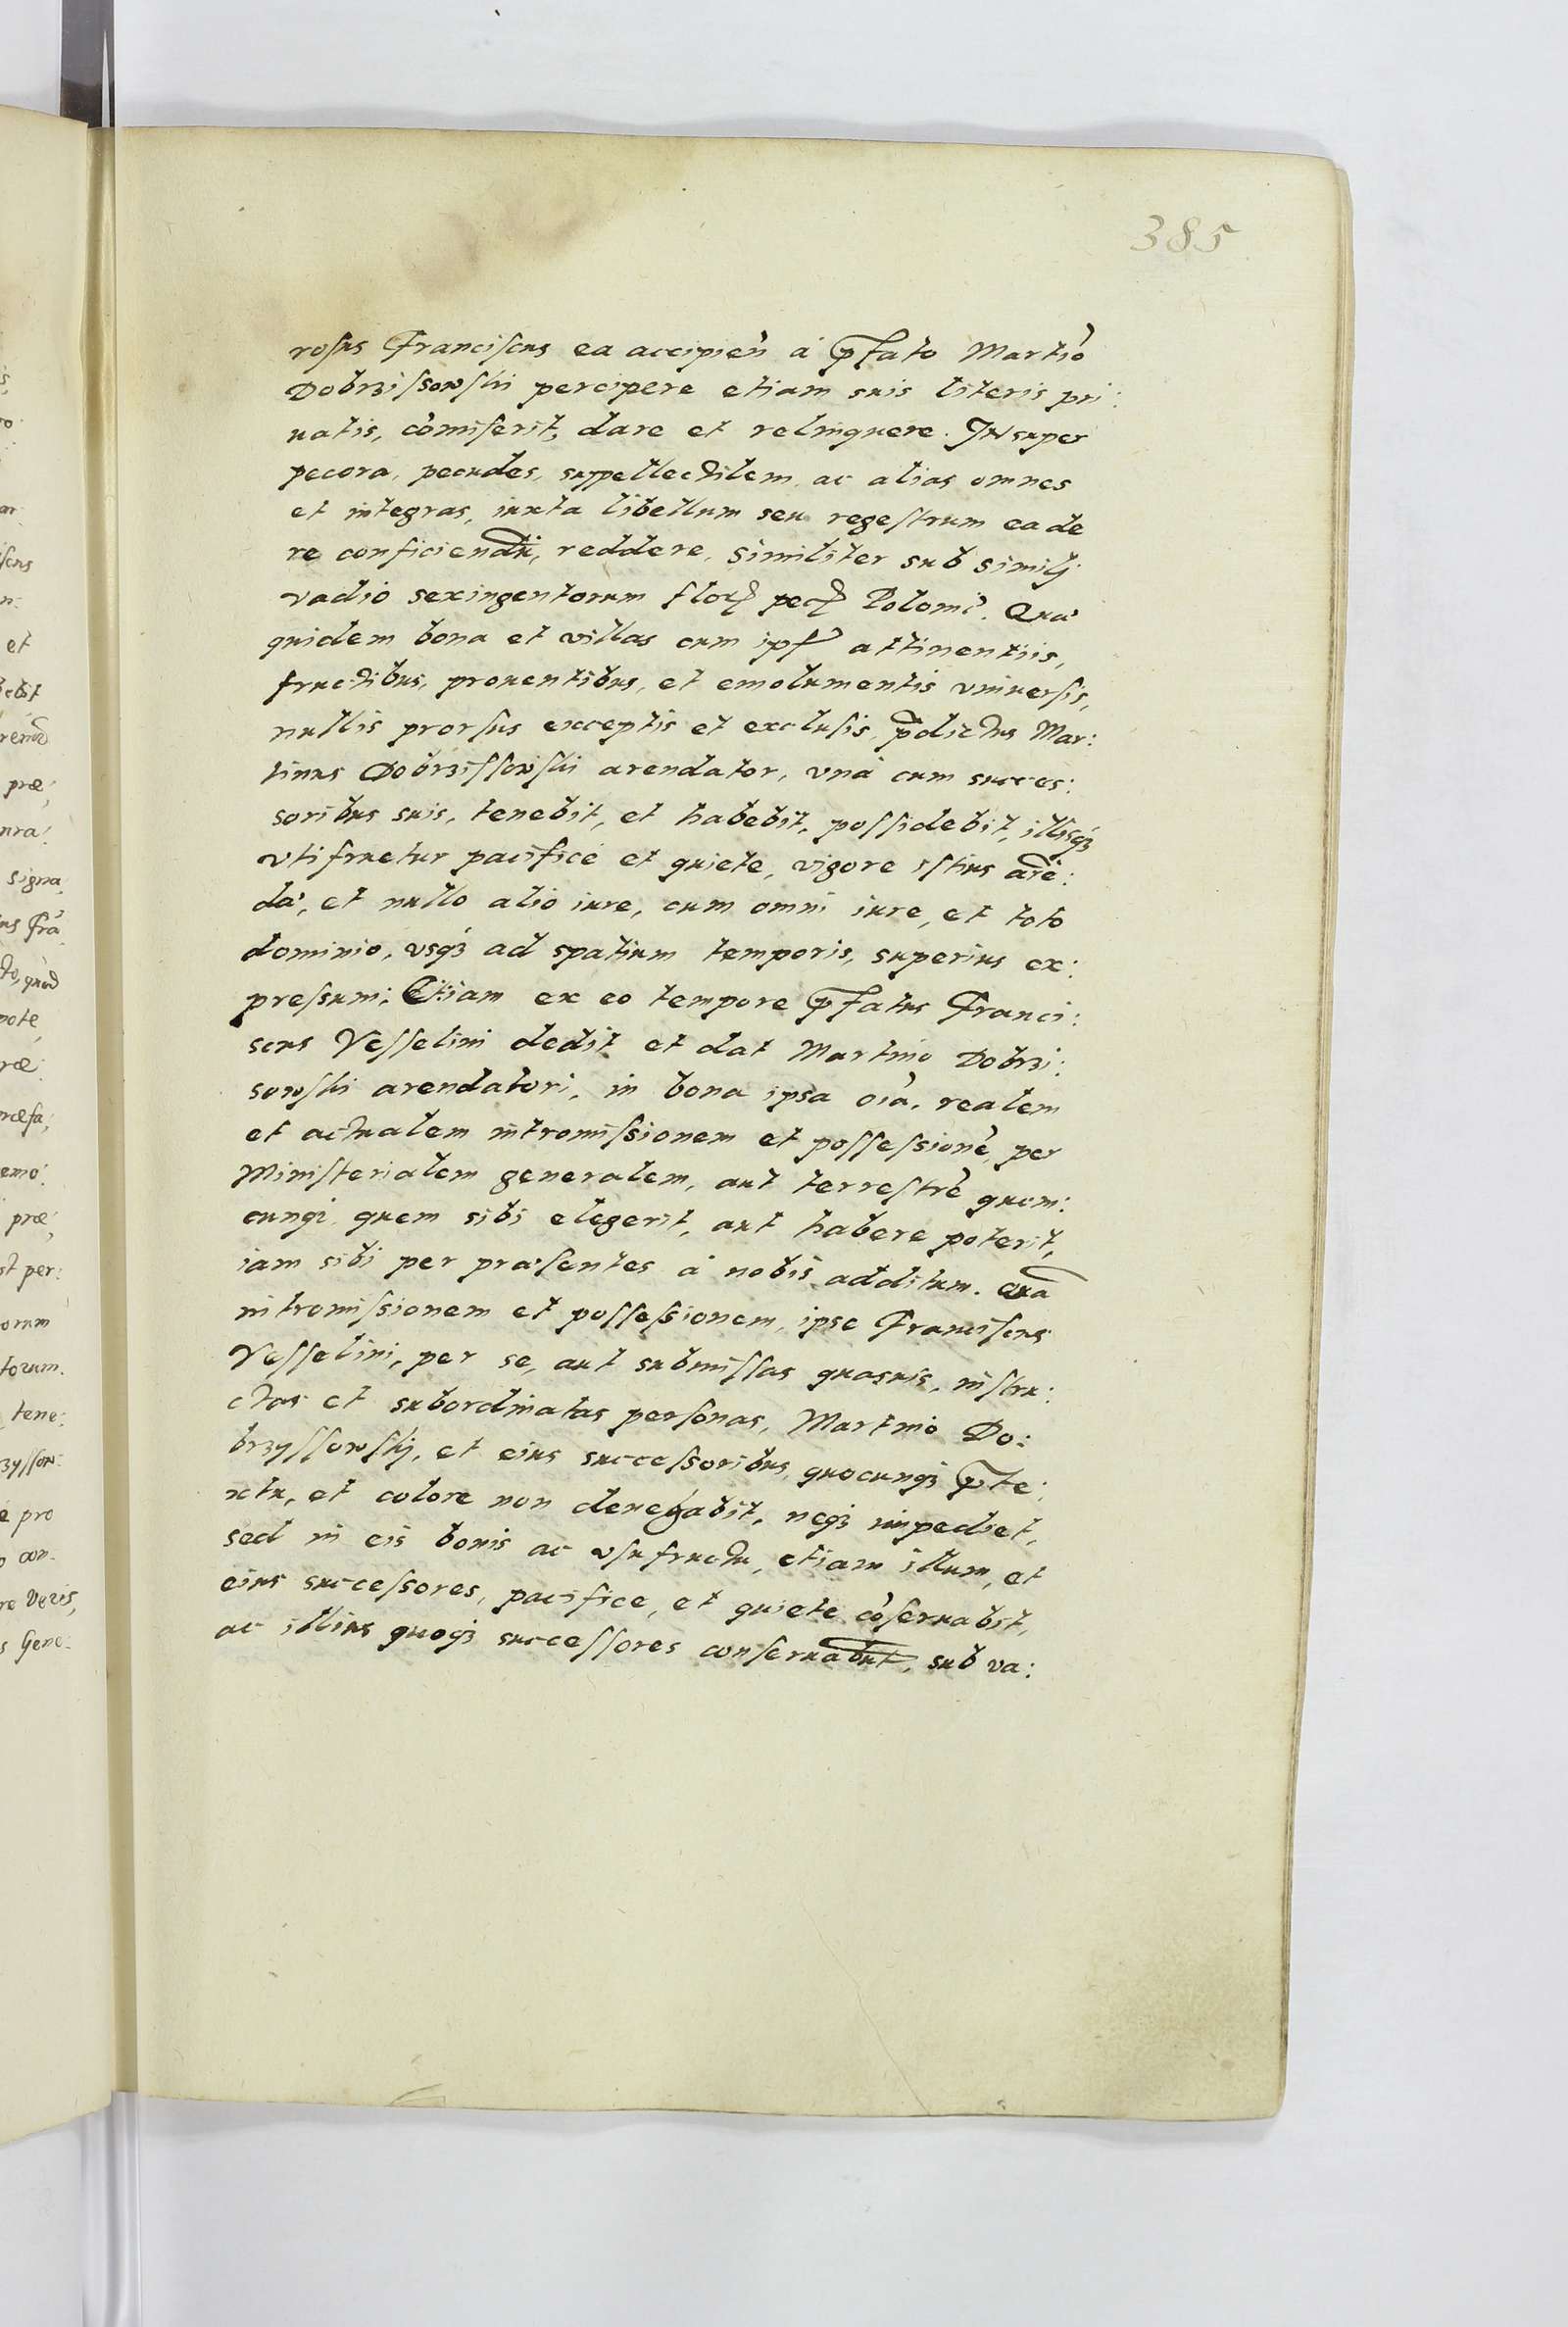 385
roſus Franciſcus ea accipień à p̃fato Martió
Dobrziſsowſki percipere etiam suis literis pri:
uatis, cōmiſerit, dare et relinquere. INsuper
pecora, pecudes, suppellectilem, ac alias omnes
et integras, iuxta libellum seu regeſtrum ea de
re conficiendū, reddere, Similiter sub simily
vadio sexingentorum flor pec Polonić. Quá
quidem bona et villas cum ipſ attinentiis,
fructibus, prouentibus, et emolumentis vniuerſis,
nullis prorſus exceptis et excluſis, p̃dictus Mar:
tinus Dobrziſſowſki arendator, vná cum succes:
soribus suis, tenebit, et habebit, poſſidebit, illisqʒ
vtifruetur pacificé et quiete, vigore iſtius arē:
dá, et nullo alio iure, cum omni iure, et toto
dominio, vsqʒ ad spatium temporis, superius ex:
preſsum: Etiam ex eo tempore p̃fatus Franci:
scus Veſſelini dedit et dat Martino Dobrzi:
sowſki arendatori, in bona ipsa oīa, realem
et actualem intromiſsionem et poſſeſsionē, per
Miniſterialem generalem, aut terreſtrē quem:
cunqʒ quem sibi elegerit, aut habere poterit,
iam sibi per præſentes á nobis additum. Quā
intromiſsionem et poſſeſsionem, ipse Franciſcus
Veſſelini, per se, aut submiſſas quasuis, inſtru:
ctas et subordinatas perſonas, Martino Do:
brzyſſowſkj, et eius succeſsoribus, quocunqʒ p̃te:
xtu, et colore non denegabit, neqʒ impediet,
sed in eis bonis ac vſufructu, etiam illum, et
eius succeſsores, pacifice, et quiete cōſeruabit,
ac illius quoqʒ succeſſores conſeruabūt, sub va: